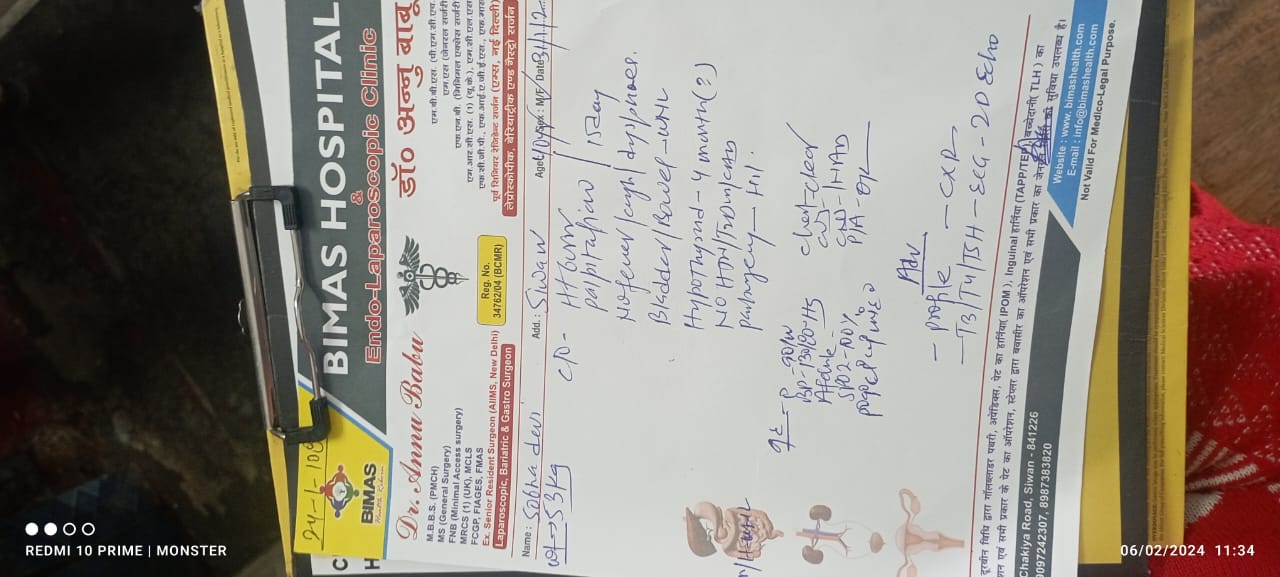 24-1-108
BIMAS
BIMAS HOSPITAL
&
Endo-Laparoscopic Clinic
Dr. Annu Babu
M.B.B.S. (PMCH)
MS (General Surgery)
FNB (Minimal Access surgery)
MRCS (1) (UK), MCLS
FCGP, FIAGES, FMAS
Ex. Senior Resident Surgeon (AIIMS, New Delhi)
Laparoscopic, Bariatric & Gastro Surgeon
Reg. No.
34762/04 (BCMR)
डॉ० अन्नु बाबू
एम.बी.बी.एस. (पी.एम.सी.एच.
एम.एस (जेनरल सर्जरी
एफ.एन.बी. (मिनिमल एक्सेस सर्जरी
एम.आर.सी.एस. (1) (यू.के), एम.सी.एल.एस
एफ.सी.जी.पी., एफ.आई.ए.जी.ई.एस., एफ.मास
पूर्व सिनियर रेजिडेन्ट सर्जन (एम्स, नई दिल्ली)
लेप्रोस्कोपीक, बेरियाट्रीक एण्ड गैस्ट्रो सर्जन
Name : Sobha devi Add. : Siwan Age : 40y Sex : M/F Date 31/1/2
wt → 53 kg
C/O -
palpitation / 15day
No fever/cough/dyspnoea.
Bladder/Bowel - WNL
Hypothyroid - 4 month (?)
NO HTN/T2DM/CAD
O/E - P - 90/m
BP - 130/80
Afebrile
SPO2 - 100%
chest - clear
CVS -
CNS - NAD
P/A -
Adv
- profile - CXR
- T3/T4/TSH - ECG - 2D Echo
दूरबीन विधि द्वारा गॉलब्लाडर पथरी, अपेंडिक्स, पेट का हार्निया (IPOM), Inguinal हार्निया (TAPP/TEP), बच्चेदानी( TLH) का
ऑपरेशन एवं सभी प्रकार के पेट का ऑपरेशन, स्टेप्लर द्वारा बवासीर का ऑपरेशन एवं सभी प्रकार का जेनरल सर्जरी की सुविधा उपलब्ध है।
Chakiya Road, Siwan - 841226
9097242307, 8987383820
Website : www.bimashealth.com
E-mail : info@bimashealth.com
Not Valid For Medico-Legal Purpose.
REDMI 10 PRIME | MONSTER
06/02/2024 11:34